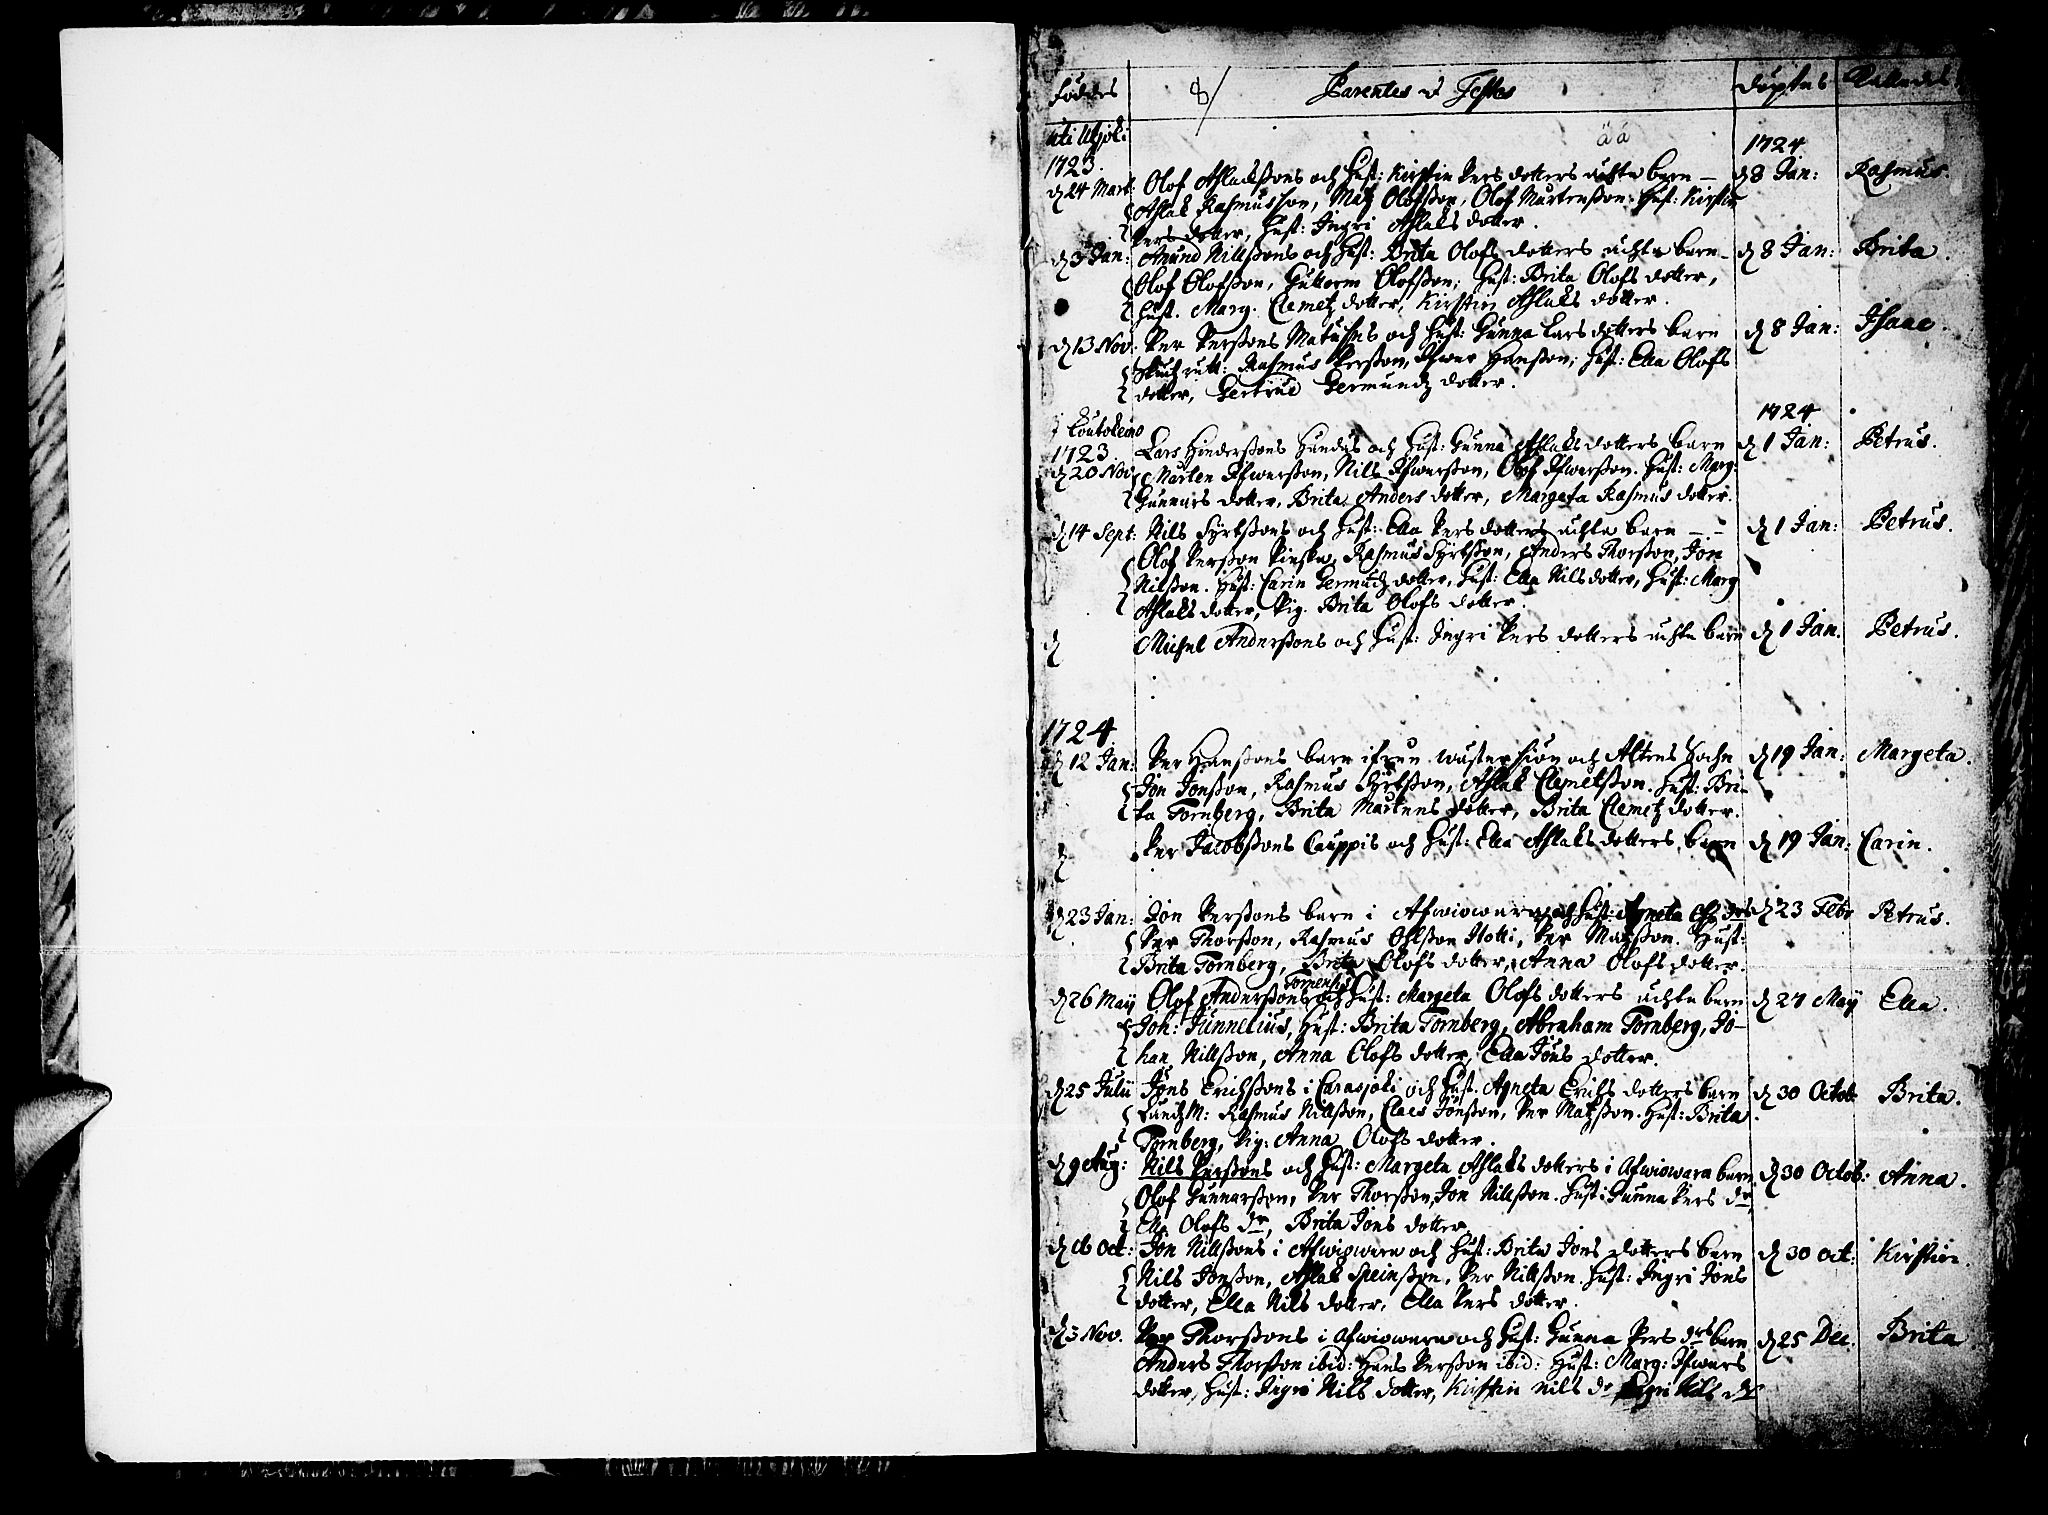 Föddes 8/ Parentes & Testes Döptes Kallades
uti Utsjoki
1723. 1724
d 24 Mart: Olof Aslackssons och Hust: Kirstin Pers dotters ächta barn — d 8 Jan: Rasmus.
Aslak Rasmusson, Matz Olofsson, Olof Mårtensson. Hust: Kirstin
Pers dotter, Hust: Ingri Aslaks dotter.
d 3 Jan: Amund Nillssons och Hust: Brita Olofs dotters ächta barn – d 8 Jan: Brita.
Olof Olofsson, Guttorm Olofsson; Hust: Brita Olofs dotter,
Hust. Marg. Clemetz dotter, Kirstin Aslaks dotter.
d 13 Nov: Per Perssons och Hust: Gunna Lars dotters barn d 8 Jan: Isaac.
Rasmus Persson, Ifwar Hansson; Hust: Ella Olofs
dotter, Gertrud Germundz dotter.
i Koutokeino 1724
1723. Lars Hinderssons och Hust: Gunna Aslaks dotters barn d 1 Jan: Petrus.
d 20 Nov: Mårten Ifwarsson, Nills Ifwarsson, Olof Ifwarsson. Hust: Marg:
Gunnars dotter, Brita Anders dotter, Margeta Rasmus dotter.
d 14 Sept: Nils Syrssons och Hust: Ella Pers dotters ächta barn — - d 1 Jan: Petrus.
Olof Persson, Rasmus Syrsson, Anders Thorsson, Jon
Nilsson. Hust: Carin Germundz dotter, Hust: Ella Nils dotter, Hust: Marg
Aslaks dotter, Pig. Brita Olofs dotter.
d Michel Anderssons och Hust: Ingri Pers dotters ächta barn d 1 Jan. Petrus.
1724
d 12 Jan: Per Hanssons barn ifrån och Altens d 19 Jan: Margeta.
Jon Jonsson, Rasmus Syrsson, Aslak Clemetsson. Hust: Bri-
ta Tornberg, Brita Mårtens dotter, Brita Clemetz dotter.
d Per Jacobssons Cauppis och Hust: Ella Aslaks dotters barn d 19 Jan: Carin.
d 23 Jan: Jon Perssons barn i Afwiowara och Hust: Agneta d 23 Febr Petrus.
Per Thorsson, Rasmus Ohlsson Hotti, Per Matsson. Hust:
Brita Tornberg, Brita Olofs dotter, Anna Olofs dotter.
d 26 Maij Olof Anderssons och Hust: Margeta Olofs dotters ächta barn d 27 Maÿ Ella.
Joh: Junnelius, Hust: Brita Tornberg, Abraham Tornberg, Jo-
han Nillsson, Anna Olofs dotter, Ella Jons dotter.
d 25 Julii Jöns Erichssons i Carasjoki och Hust. Agneta Erichs dotters barn d 30 Octob Brita.
Rasmus Nillsson, Claes Jönsson, Per Matsson. Hust: Brita
Tornberg, Pig: Anna Olofs dotter.
d 9 Aug: Nils Perssons och Hust: Margeta Aslaks dotters i Afwiowara barn d 30 Octob: Anna.
Olof Gunnarsson, Per Thorsson, Jon Nillsson. Hust: Gunna Pers dr,
Ella Olofs dr, Brita Jons dotter.
d 16 Oct: Jon Nillssons i Afwiowara och Hust: Brita Jons dotters barn d 30 Oct: Kirstin.
Nils Jonsson, Aslak Speinsson, Per Nillsson. Hust: Ingri Jöns
dotter, Ella Nils dotter, Ella Pers dotter.
d 3 Nov. Per Thorssons i Afwiowara och Hust: Gunna Pers drs barn d 25 Dec: Brita
Anders Thorsson ibid: Hans Persson ibid: Hust: Marg: Ifwars
dotter, Hust: Ingri Nils dotter, Kirstin Nils dr Ingri Nils dr